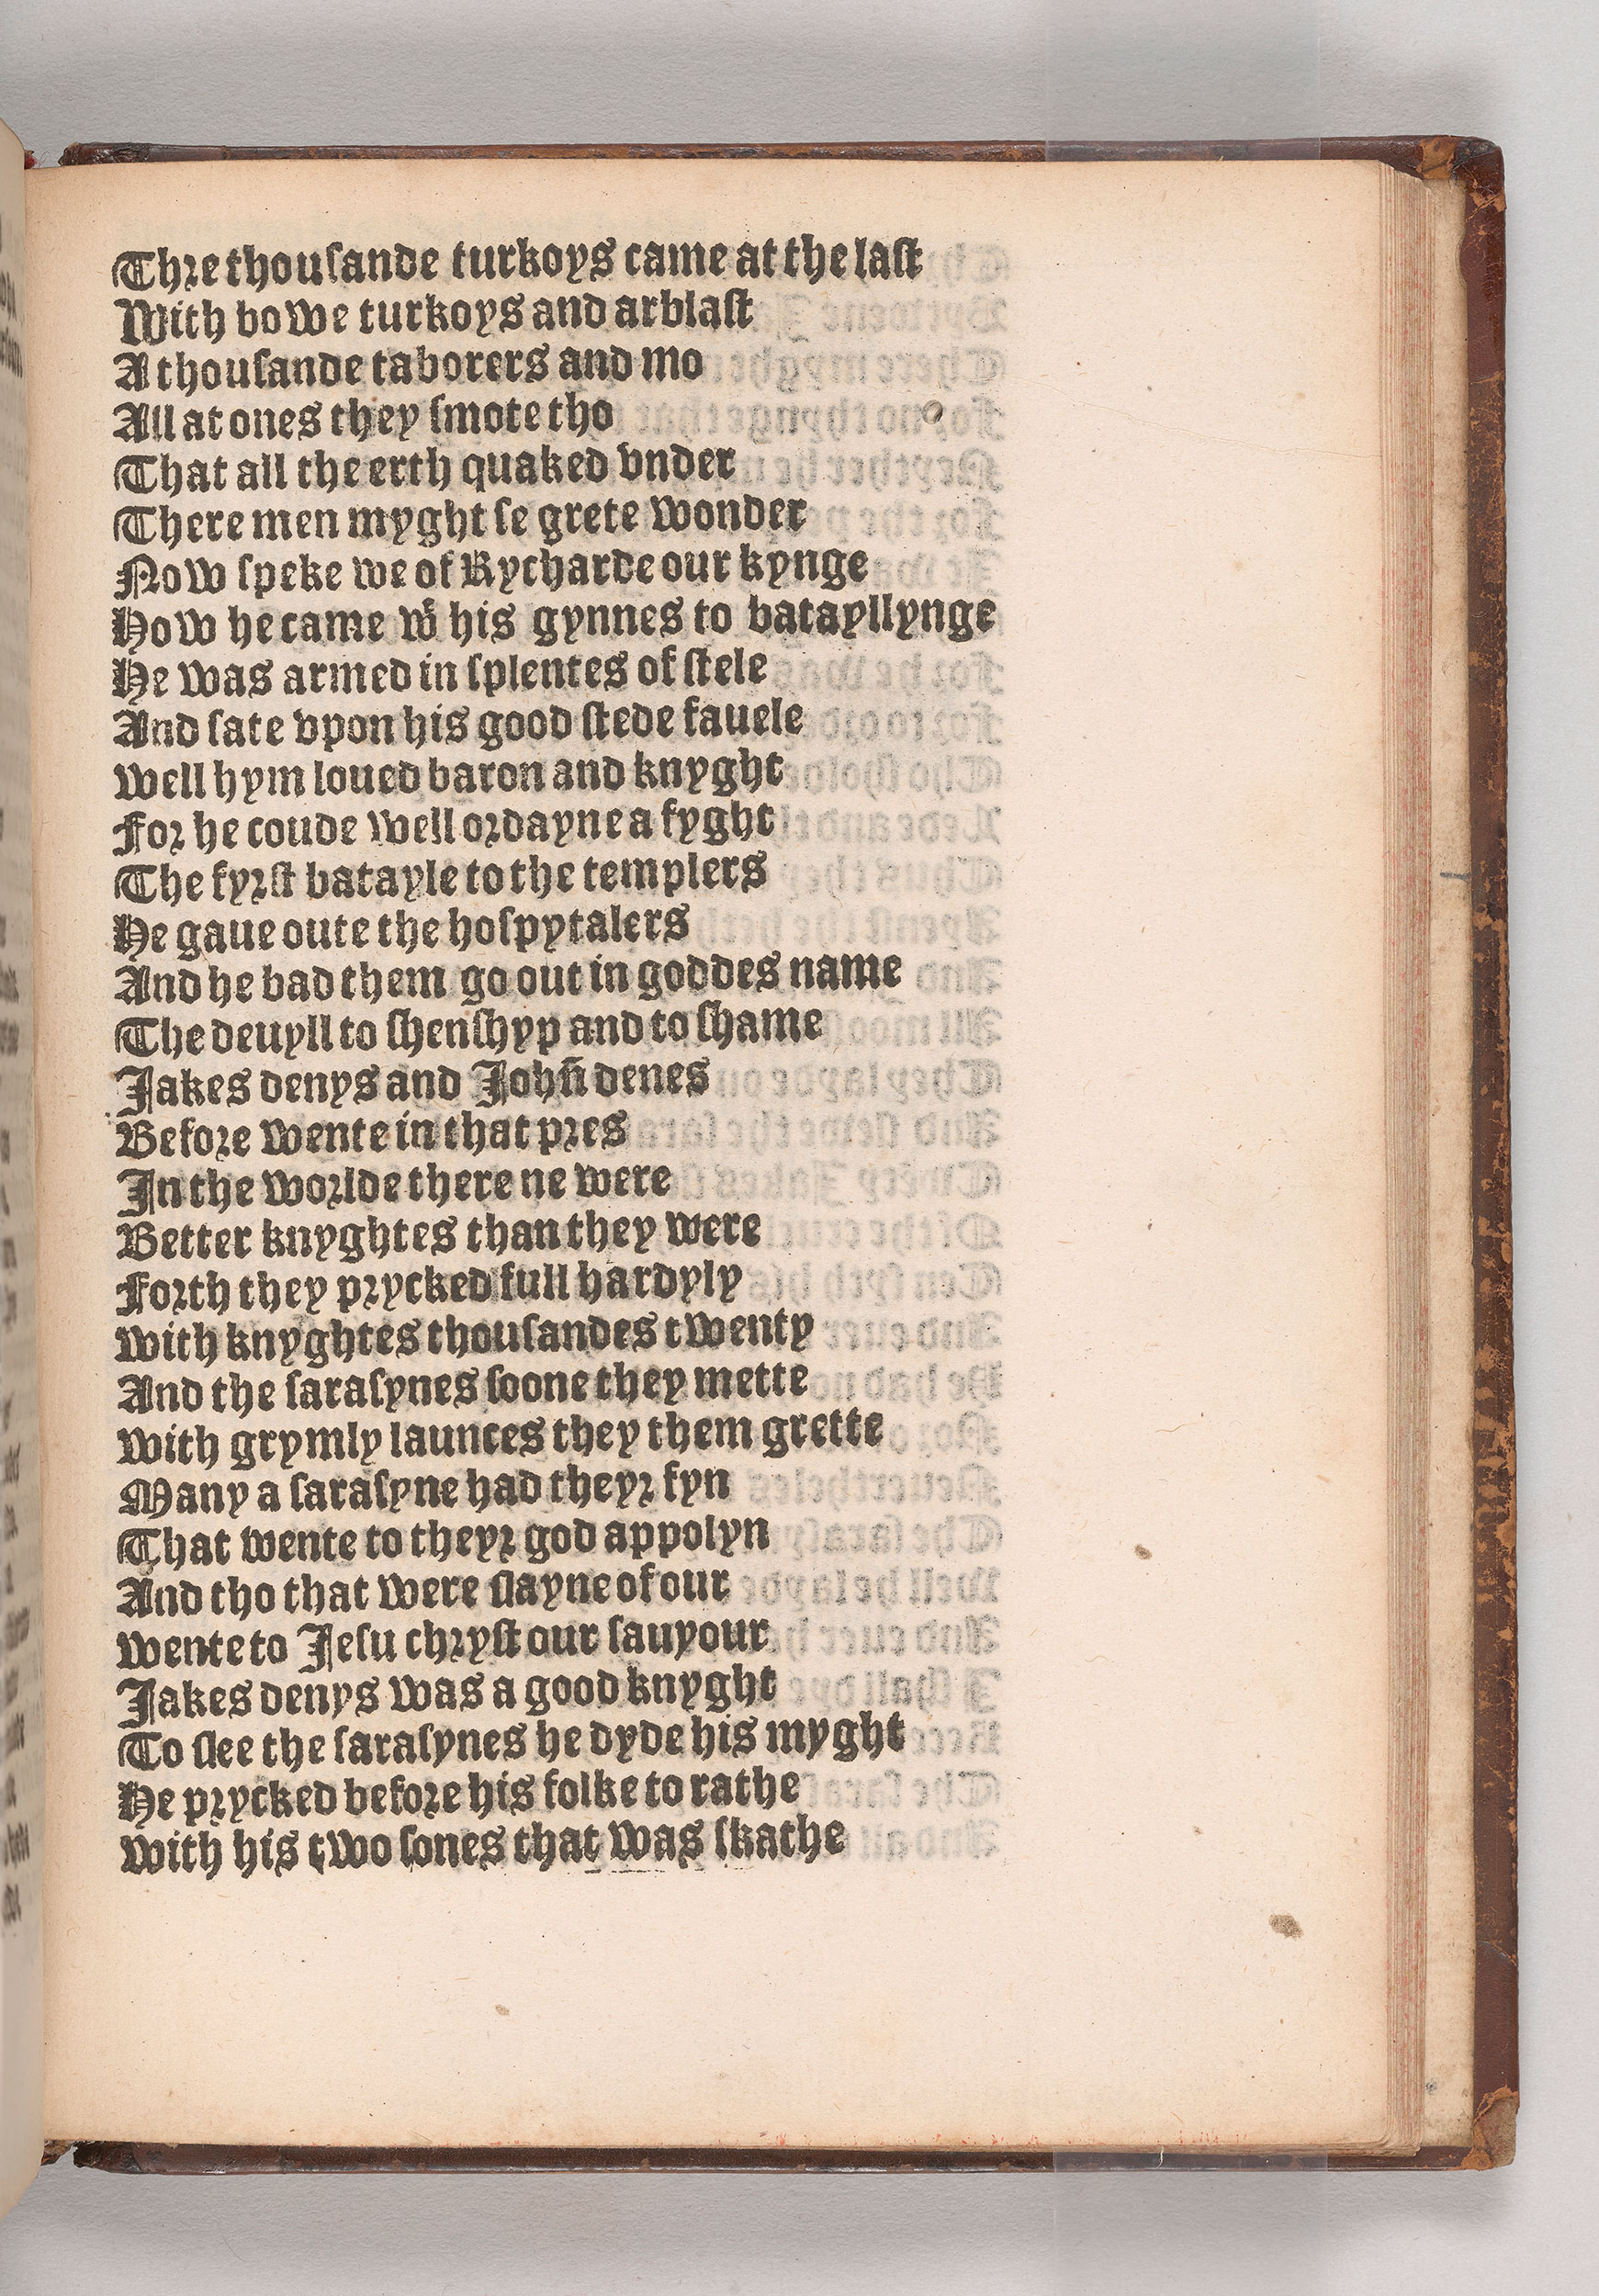 Thre thouſande turkoys came at the laſt
With bowe turkoys and arblaſt
A thouſande taborers and mo
All at ones they ſmote tho
That all the erth quaked vnder
There men myght ſe grete wonder
Now ſpeke we of Rycharde our kynge
How he came wͭ his gynnes to batayllynge
He was armed in ſplentes of ſtele
And ſate vpon his good ſtede fauele
Well hym loued baron and knyght
For he coude well ordayne a fyght
The fyrſt batayle to the templers
He gaue oute the hoſpytalers
And he bad them go out in goddes name
The deuyll to ſhenſhyp and to ſhame
Jakes denys and Johñ denes
Before wente in that pres
In the worlde there ne were
Better knyghtes than they were
Forth they prycked full hardyly
With knyghtes thouſandes twenty
And the ſaraſynes ſoone they mette
With grymly launces they them grette
Many a ſaraſyne had theyr fyn
That wente to theyr god appolyn
And tho that were ſlayne of our
Wente to Jeſu chryſt our ſauyour
Jakes denys was a good knyght
To ſlee the ſaraſynes he dyde his myght
He prycked before his folke to rathe
With his two ſones that was ſkathe